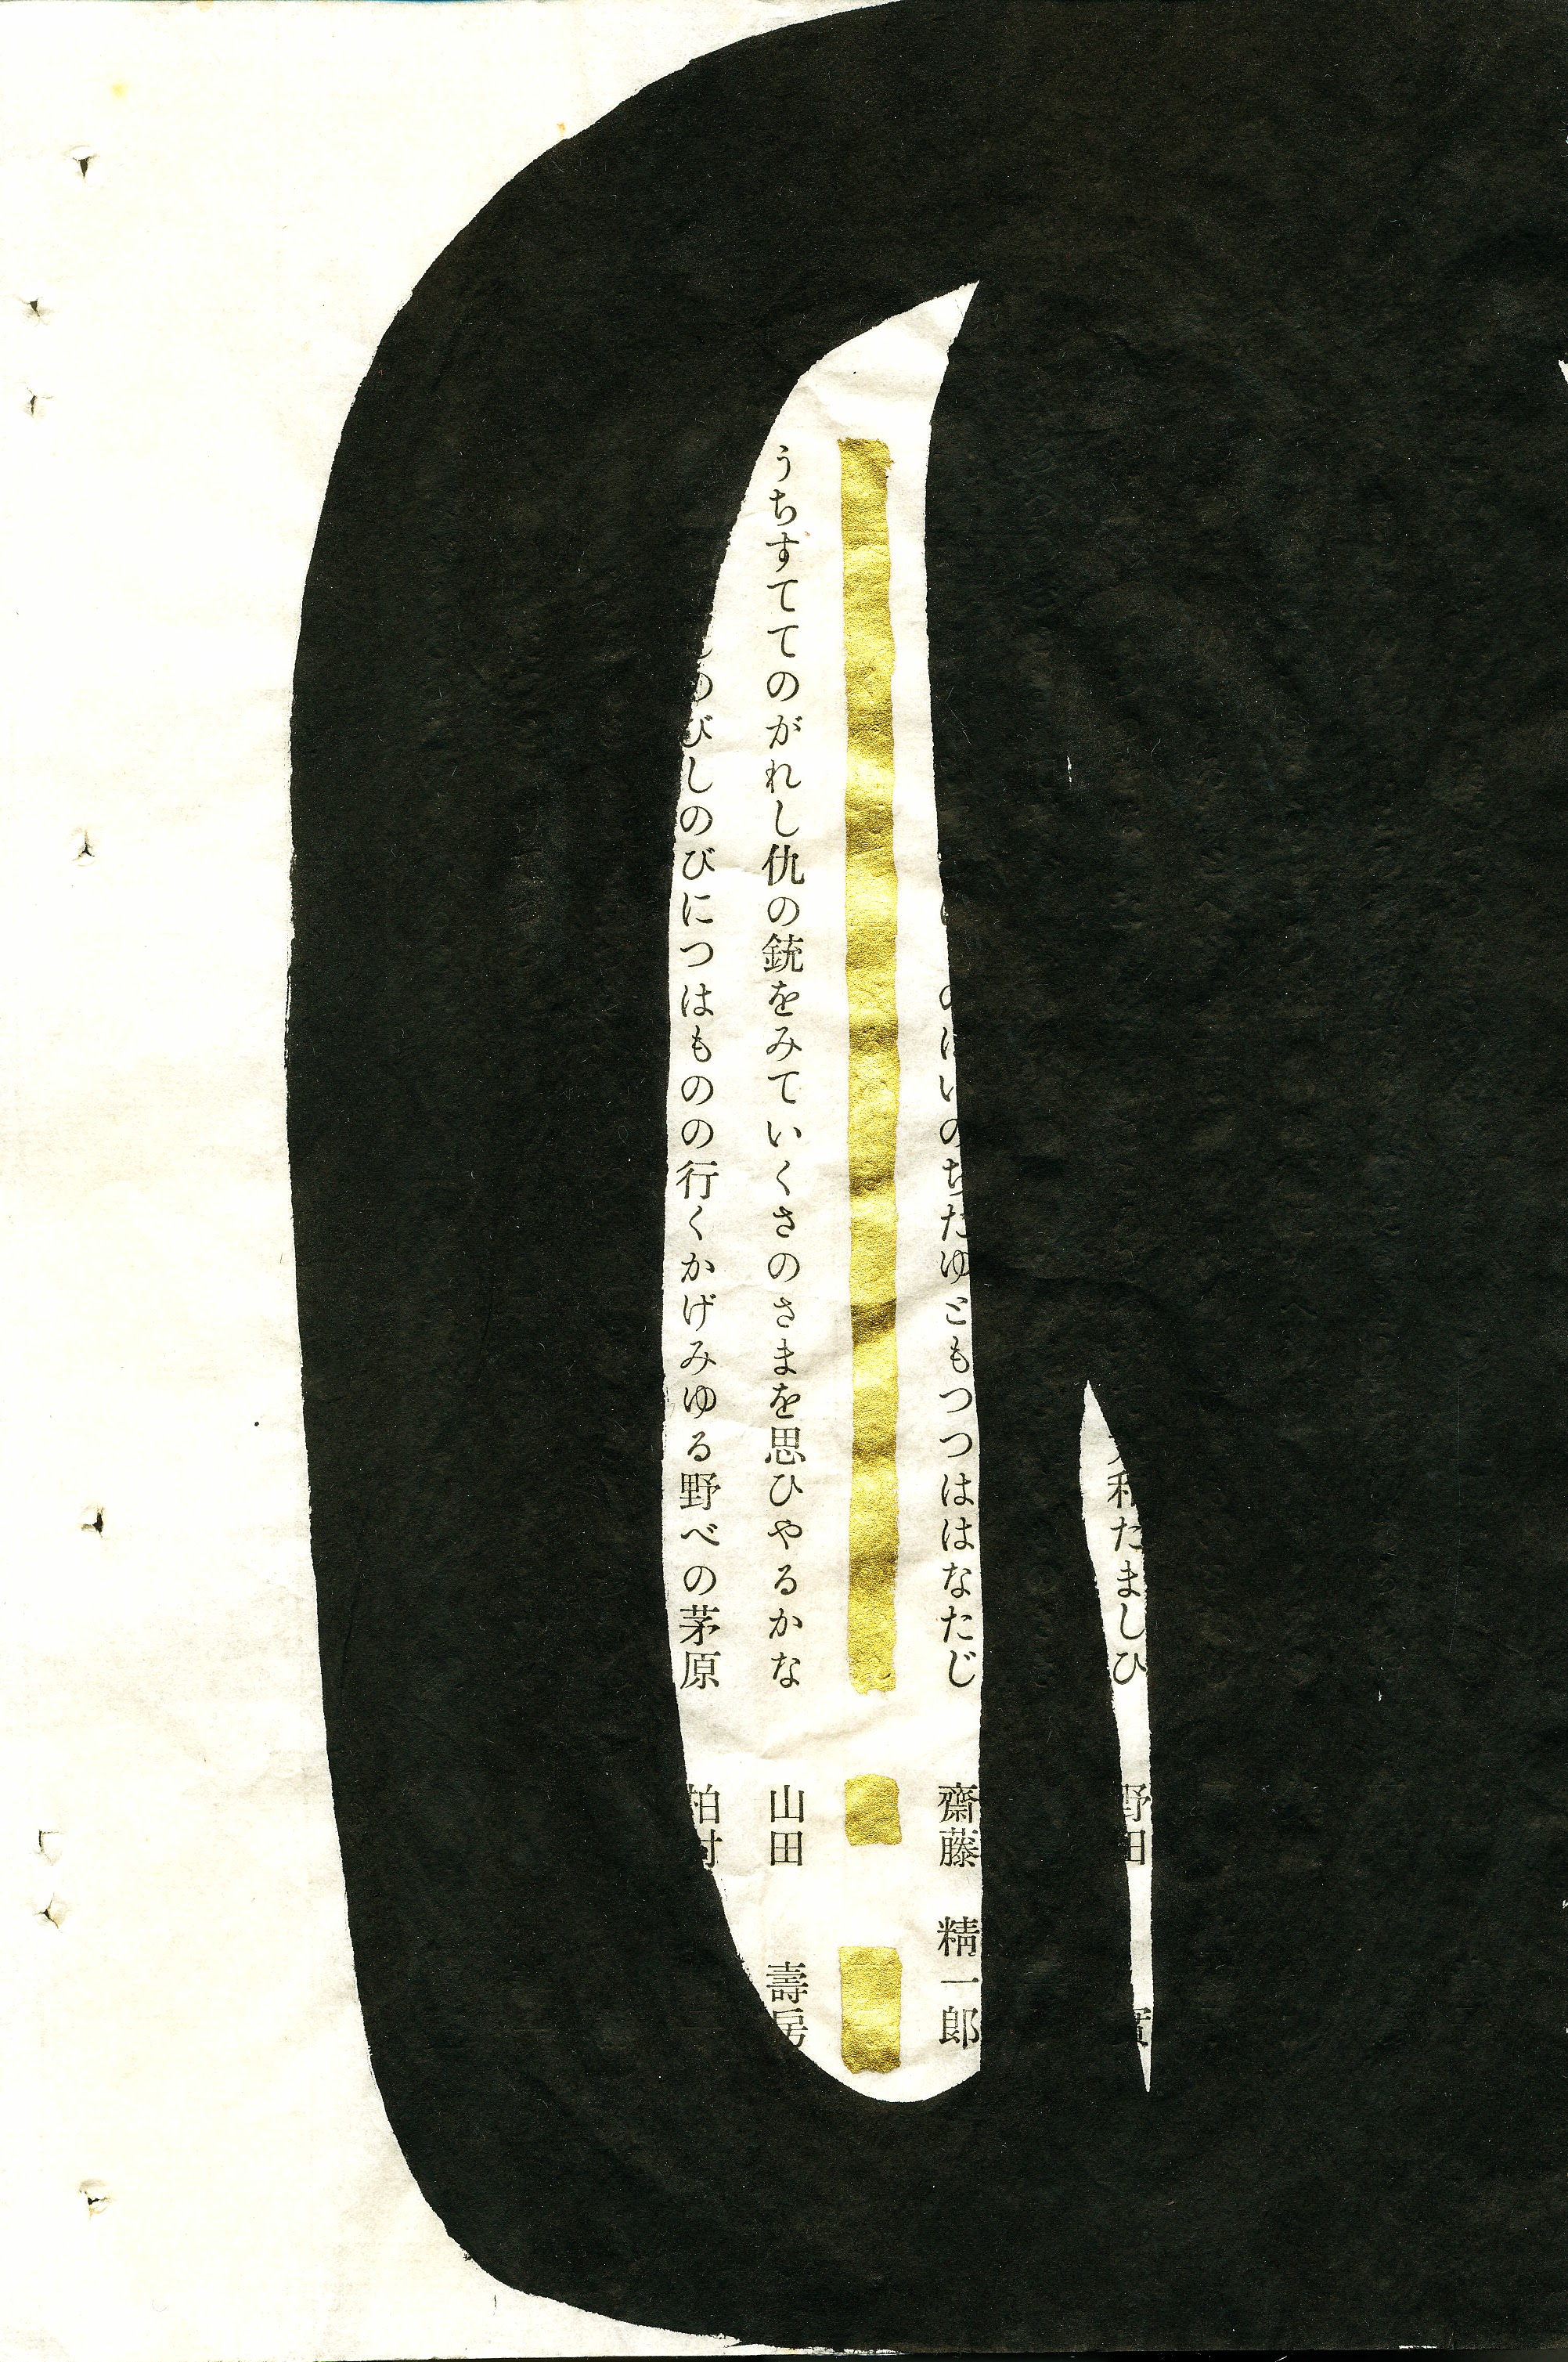 和たましひ 野田
のちたゆともつつははなたじ 齋藤 精一郎
うちすててのがれし仇の銃をみていくさのさまを思ひやるかな 山田 壽房
びしのびにつはものの行くかげみゆる野べの茅原 柏村